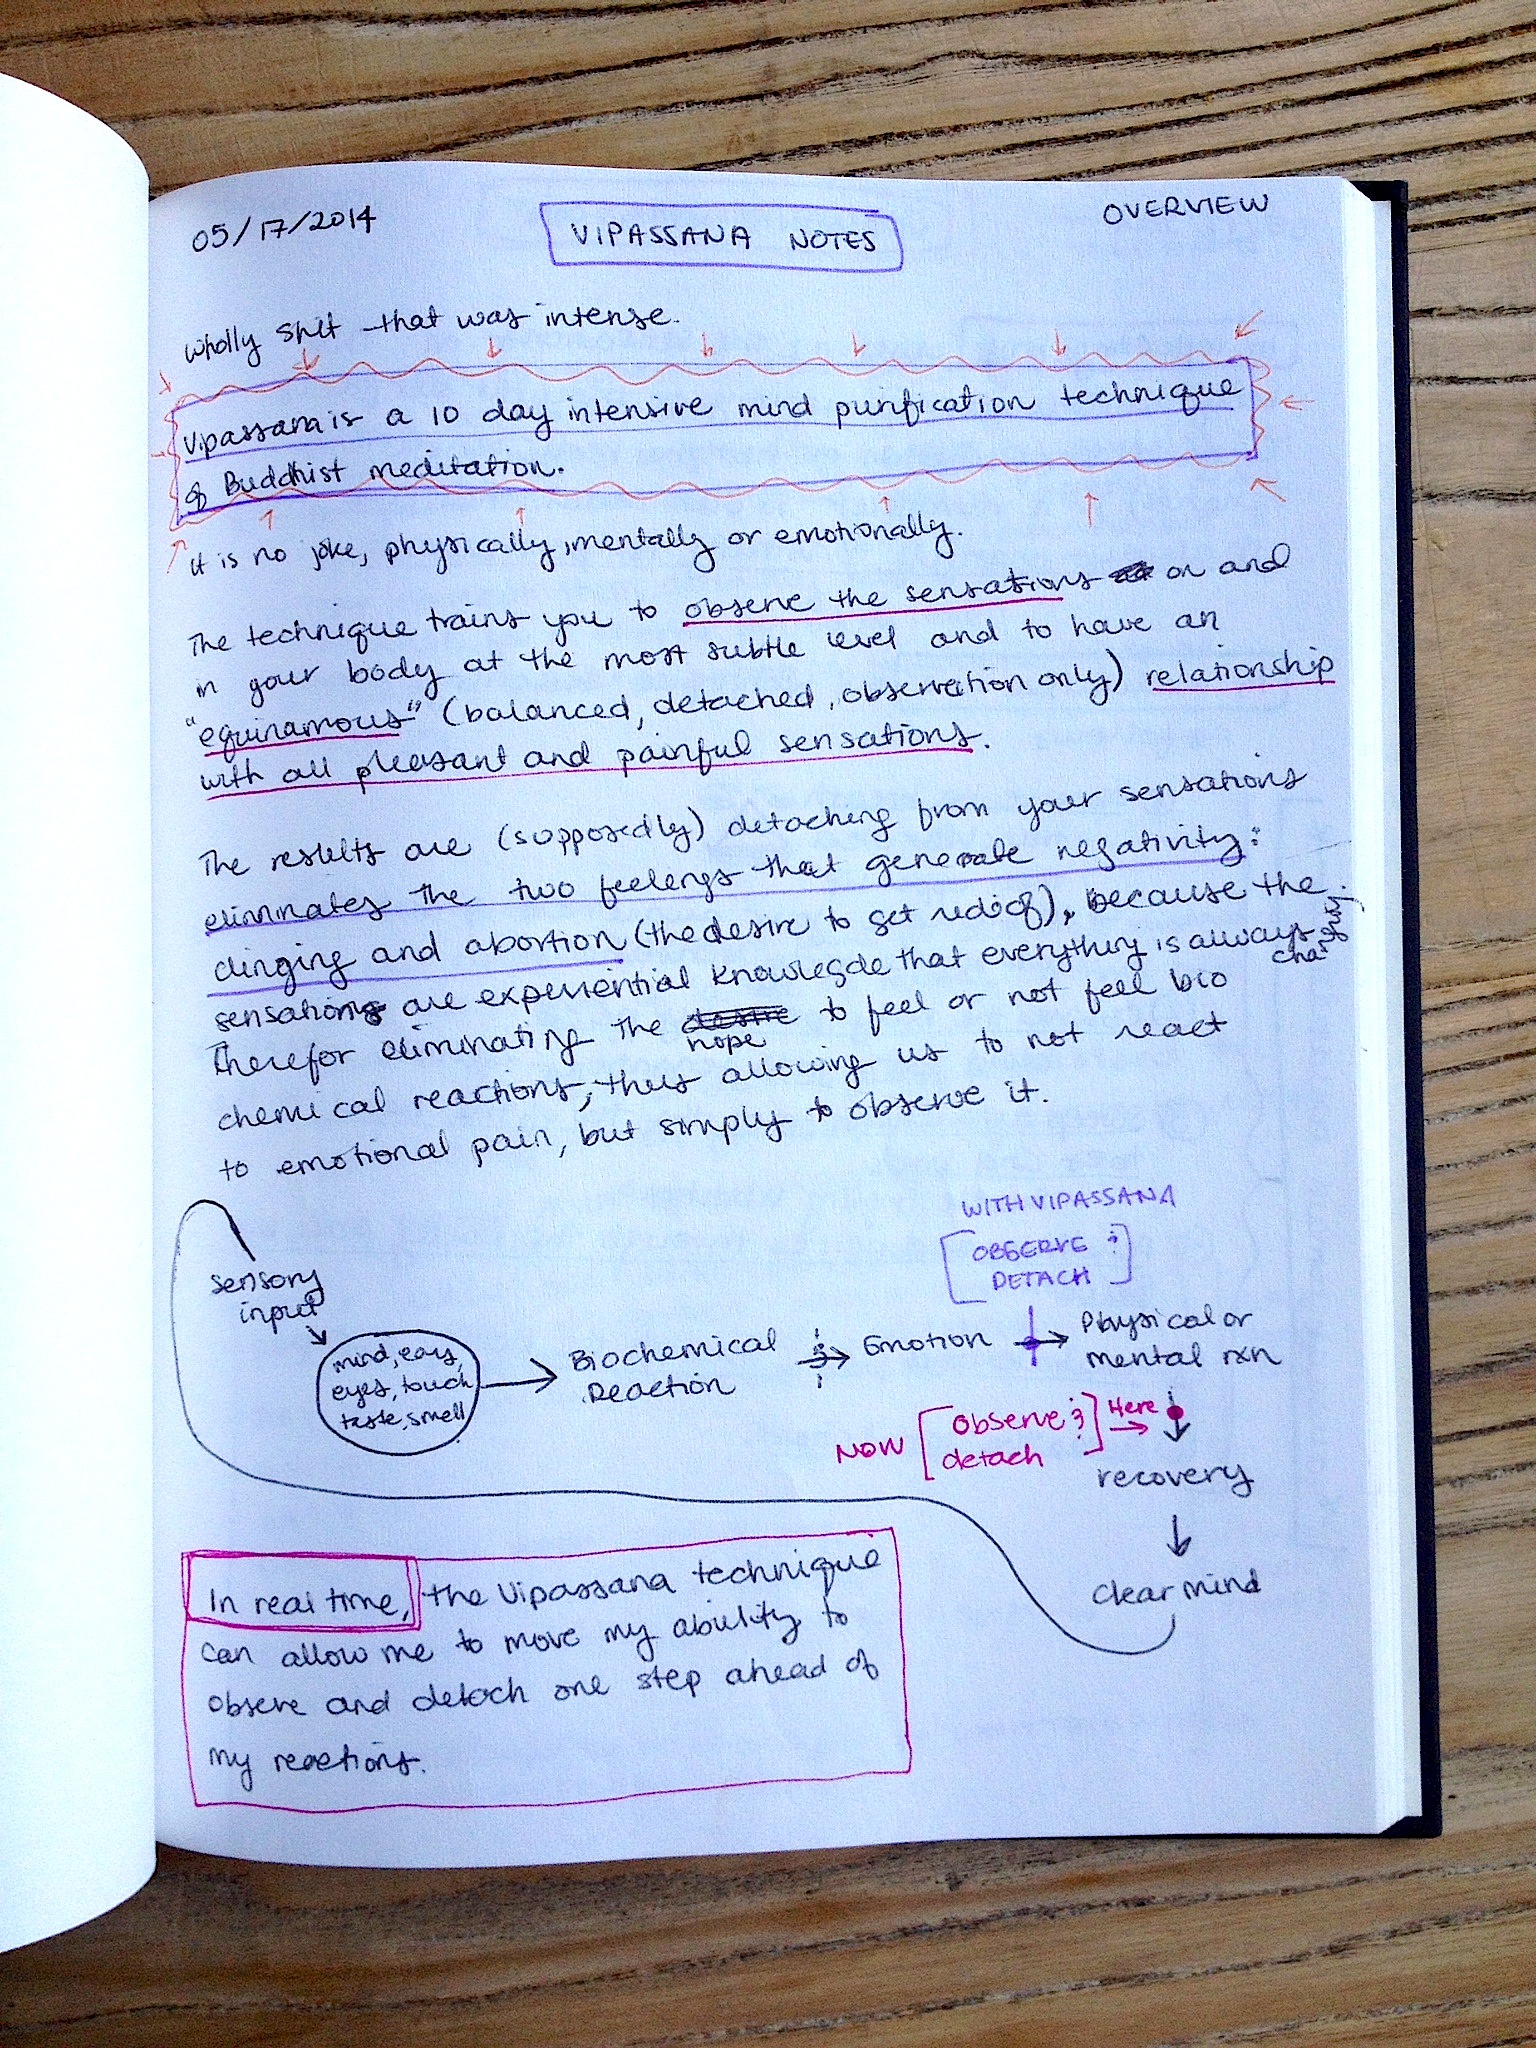 05/17/2014
VIPASSANA NOTES
OVERVIEW
wholly shit that was intense.
Vipassana is a 10 day intensive mind purification technique
of Buddhist meditation.
it is no joke, physically, mentally or emotionally.
The technique trains you to observe the sensations on and
in your body at the most subtle level and to have an
"equinamous" (balanced, detached, observation only) relationship
with all pleasant and painful sensations.
The results are (supposedly) detaching from your sensations
eliminates the two feelings that generate negativity:
clinging and abortion (the desire to get rid of), because the
sensations are experiential knowlegde that everything is always changing.
Therefor eliminating the hope to feel or not feel bio
chemical reactions, thus allowing us to not react
to emotional pain, but simply to observe it.
WITH VIPASSANA
[OBSERVE &
DETACH]
sensory
input
mind, ears,
eyes, touch
taste, smell
Biochemical
Reaction
Emotion
Physical or
mental rxn
NOW [Observe &
detach] Here
recovery
clear mind
In real time, the Vipassana technique
can allow me to move my ability to
observe and detach one step ahead of
my reactions.